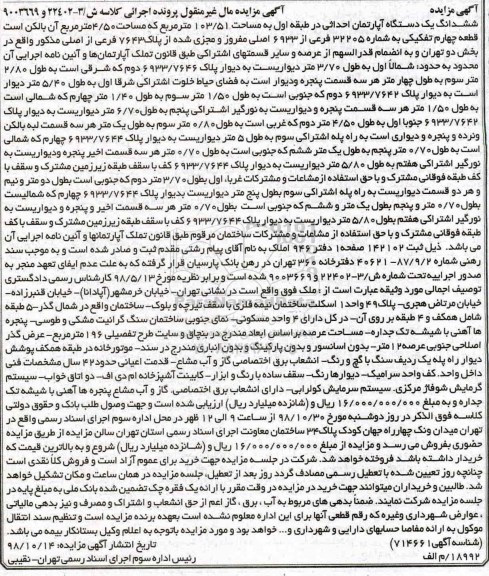 آگهی مزایده
آگهی مزایده مال غیرمنقول پرونده اجرائی کلاسه ش/۲۲۴۰۲-۳ و ۹۰۰۳۶۶۹
ششدانگ یک دستگاه آپارتمان احداثی در طبقه اول به مساحت ۱۰۳/۵۱ مترمربع که مساحت ۴/۵۰ مترمربع آن بالکن است
قطعه چهارم تفکیکی به شماره ۳۲۲۰۵ فرعی از ۶۹۳۳ اصلی مفروز و مجزی شده از پلاک ۷۶۴۳ فرعی از اصلی مذکور واقع در
بخش دو تهران و به انضمام قدرالسهم از عرصه و سایر قسمتهای اشتراکی طبق قانون تملک آپارتمان‌ها و آئین نامه اجرایی آن
محدود به حدود: شمالاً اول به طول ۳/۷۰ متر دیواریست به دیوار پلاک ۶۹۳۳/۷۶۴۶ دوم که شرقی است به طول ۲/۸۰
متر سوم به طول چهار متر هر سه قسمت پنجره ودیوار است به فضای حیاط خلوت اشتراکی شرقا اول به طول ۵/۴۰ متر دیوار
است به دیوار پلاک ۶۹۳۳/۷۶۴۲ دوم که جنوبی است به طول ۱/۵۰ متر سوم به طول ۱/۴۰ متر چهارم که شمالی است
به طول ۱/۵۰ متر هر سه قسمت پنجره و دیواریست به نورگیر اشتراکی پنجم به طول ۶/۷۰ متر دیواریست به دیوار پلاک
۶۹۳۳/۷۶۴۲ جنوبا اول به طول ۴/۵۰ متر دوم که غربی است به طول ۰/۸۰ متر سوم به طول یک متر هر سه قسمت لبه بالکن
ونرده و پنجره و دیواری است به راه پله اشتراکی سوم به طول ۵ متر دیواریست به دیوار پلاک ۶۹۳۳/۷۶۴۴ چهارم که شمالی
است به طول ۰/۷۰ متر پنجم به طول یک متر ششم که جنوبی است به طول ۰/۷۰ متر هر سه قسمت اخیر پنجره ودیواریست به
نورگیر اشتراکی هفتم به طول ۵/۸۰ متر دیواریست به دیوار پلاک ۶۹۳۳/۷۶۴۴ کف با سقف طبقه زیرزمین مشترک و سقف با
کف طبقه فوقانی مشترک و با حق استفاده ازمشاعات و مشترکات غربا، اول بطول ۳/۷۰ متر دوم که جنوبی است بطول دو متر و نیم
و هر دو قسمت دیواریست به راه پله اشتراکی سوم بطول پنج متر دیواریست بدیوار پلاک ۶۹۳۳/۷۶۴۴ چهارم که شمالیست
بطول ۰/۷۰ متر و پنجم بطول یک متر و ششم که جنوبی است بطول ۰/۷۰ متر هر سه قسمت اخیر و پنجره و دیواریست به
نورگیر اشتراکی هفتم بطول ۵/۸۰ متر دیواریست به دیوار پلاک ۶۹۳۳/۷۶۴۴ کف با سقف طبقه زیرزمین مشترک و سقف با کف
طبقه فوقانی مشترک و با حق استفاده از مشاعات و مشترکات ساختمان مرقوم طبق قانون تملک آپارتمانها و آئین نامه اجرایی آن
می باشد. ذیل ثبت ۱۴۲۱۰۲ صفحه ۱ دفتر ۹۴۶ املاک به نام آقای پیام رشتی مقدم ثبت و صادر شده است و به موجب سند
رهنی شماره ۴۰۶۲۱-۸۷/۹/۲ دفترخانه ۳۶۰ تهران در رهن بانک پارسیان قرار گرفته که به علت عدم ایفای تعهد منجر به
صدور اجراییه تحت شماره ش/۲۲۴۰۲-۳ و ۹۰۰۳۶۶۹ شده است و بر نظریه مورخ ۹۸/۵/۱۳ کارشناس رسمی دادگستری
توصیف اجمالی مورد وثیقه عبارت است از: ملک فوق واقع است در نشانی تهران- خیابان خرمشهر(آپادانا)- خیابان قنبرزاده-
خیابان مرتاض هجری- پلاک ۴۹ واحد ۱ اسکلت ساختمان نیمه فلزی با سقف تیرچه و بلوک- ساختمان واقع در شمال گذر- ۵ طبقه
شامل همکف و ۴ طبقه بر روی آن- در کل دارای ۴ واحد مسکونی- نمای جنوبی ساختمان سنگ گرانیت مشکی و طوسی- پنجره
ها آهنی با شیشه تک جداره- مساحت عرصه براساس ابعاد مندرج در بنچاق و سایت طرح تفصیلی ۱۹۶ مترمربع- عرض گذر
اصلاحی جنوبی عرصه ۱۲ متر- بدون اسانسور و بدون پارکینگ و بدون انباری مندرج در سند- موتورخانه در طبقه همکف پوشش
دیوار راه پله یک ردیف سنگ با گچ و رنگ- انشعاب برق اختصاصی گاز و آب مشاع- قدمت اعیانی حدود ۴۲ سال مشخصات فنی
داخل واحد. کف واحد سرامیک- دیوارها رنگ- سقف ساده با رنگ و ابزار- کابینت آشپزخانه ام دی اف- دو اتاق خواب- سیستم
گرمایش شوفاژ مرکزی. سیستم سرمایش کولرآبی- دارای انشعاب برق اختصاصی، گاز و آب مشاع پنجره ها آهنی با شیشه تک
جداره و به مبلغ ۱۶/۰۰۰/۰۰۰/۰۰۰ ریال (و شانزده میلیارد ریال) ارزیابی شده است و جهت وصول طلب بانک و حقوق دولتی
کلاسه فوق الذکر در روز دوشنبه مورخ ۹۸/۱۰/۳۰ از ساعت ۹ الی ۱۲ ظهر در محل اداره سوم اجرای اسناد رسمی واقع در
تهران میدان ونک چهارراه جهان کودک پلاک ۳۴ ساختمان معاونت اجرای اسناد رسمی استان تهران سالن مزایده از طریق مزایده
حضوری بفروش می رسد و مزایده از مبلغ ۱۶/۰۰۰/۰۰۰/۰۰۰ ریال (و شانزده میلیارد ریال) شروع و به بالاترین قیمت که
خریدار داشته باشد فروخته خواهد شد. شرکت در جلسه مزایده جهت خرید برای عموم آزاد است و فروش کلا نقدی است
چنانچه روز تعیین شده با تعطیل رسمی مصادف گردد روز بعد از تعطیل، جلسه مزایده در همان ساعت و مکان تشکیل خواهد
شد. طالبین و خریداران میتوانند جهت خرید در مزایده در وقت مقرر با ارائه یک فقره چک تضمین شده بانک ملی به مبلغ پایه در
جلسه مزایده شرکت نمایند. ضمناً بدهی های مربوط به آب، برق، گاز اعم از حق انشعاب و اشتراک و مصرف و نیز بدهی مالیاتی
، عوارض شهرداری وغیره که رقم قطعی آنها برای این اداره معلوم نشده است بعهده برنده مزایده است و تنظیم سند انتقال
موکول به ارائه مفاصا حسابهای دارایی و شهرداری و... خواهد بود و مورد مزایده باتوجه به اعلام وکیل بستانکار بیمه می باشد.
(شناسه آگهی ۷۱۴۶۶۱) تاریخ انتشار آگهی مزایده: ۹۸/۱۰/۱۴
۱۸۹۹۲/م الف رئیس اداره سوم اجرای اسناد رسمی تهران- نقیبی